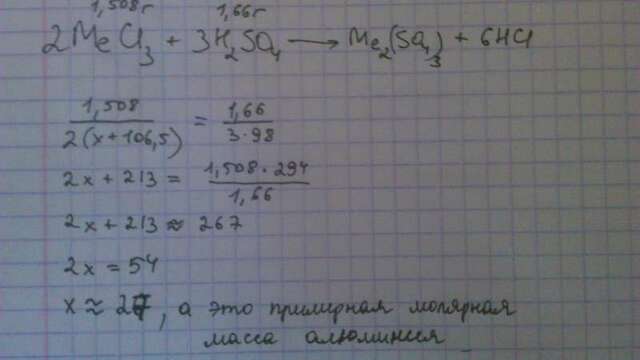 1,508 г 1,66 г
2MeCl₃ + 3H₂SO₄ ⟶ Me₂(SO₄)₃ + 6HCl
1,508 / 2(x+106,5) = 1,66 / 3·98
2x + 213 = 1,508 · 294 / 1,66
2x + 213 ≈ 267
2x = 54
x ≈ 27, а это примерная молярная
масса алюминия